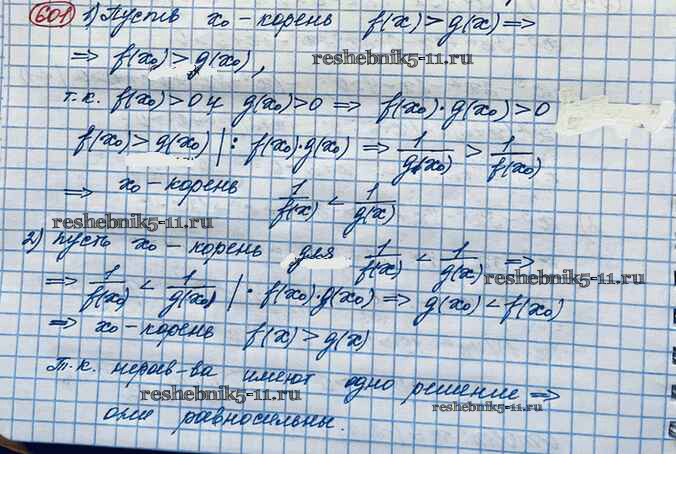 601 1) Пусть x₀ - корень f(x) > g(x) ⇒
reshebnik5-11.ru
⇒ f(x₀) > g(x₀),
т.к. f(x₀) > 0 и g(x₀) > 0 ⇒ f(x₀)·g(x₀) > 0
f(x₀) > g(x₀) | : f(x₀)·g(x₀) ⇒ 1/g(x₀) > 1/f(x₀)
⇒ x₀ - корень 1/f(x) < 1/g(x)
reshebnik5-11.ru
2) пусть x₀ - корень для 1/f(x) < 1/g(x) ⇒
reshebnik5-11.ru
⇒ 1/f(x₀) < 1/g(x₀) | · f(x₀)·g(x₀) ⇒ g(x₀) < f(x₀)
⇒ x₀ - корень f(x) > g(x)
Т.к. нерав-ва имеют одно решение ⇒
reshebnik5-11.ru
reshebnik5-11.ru
они равносильны.